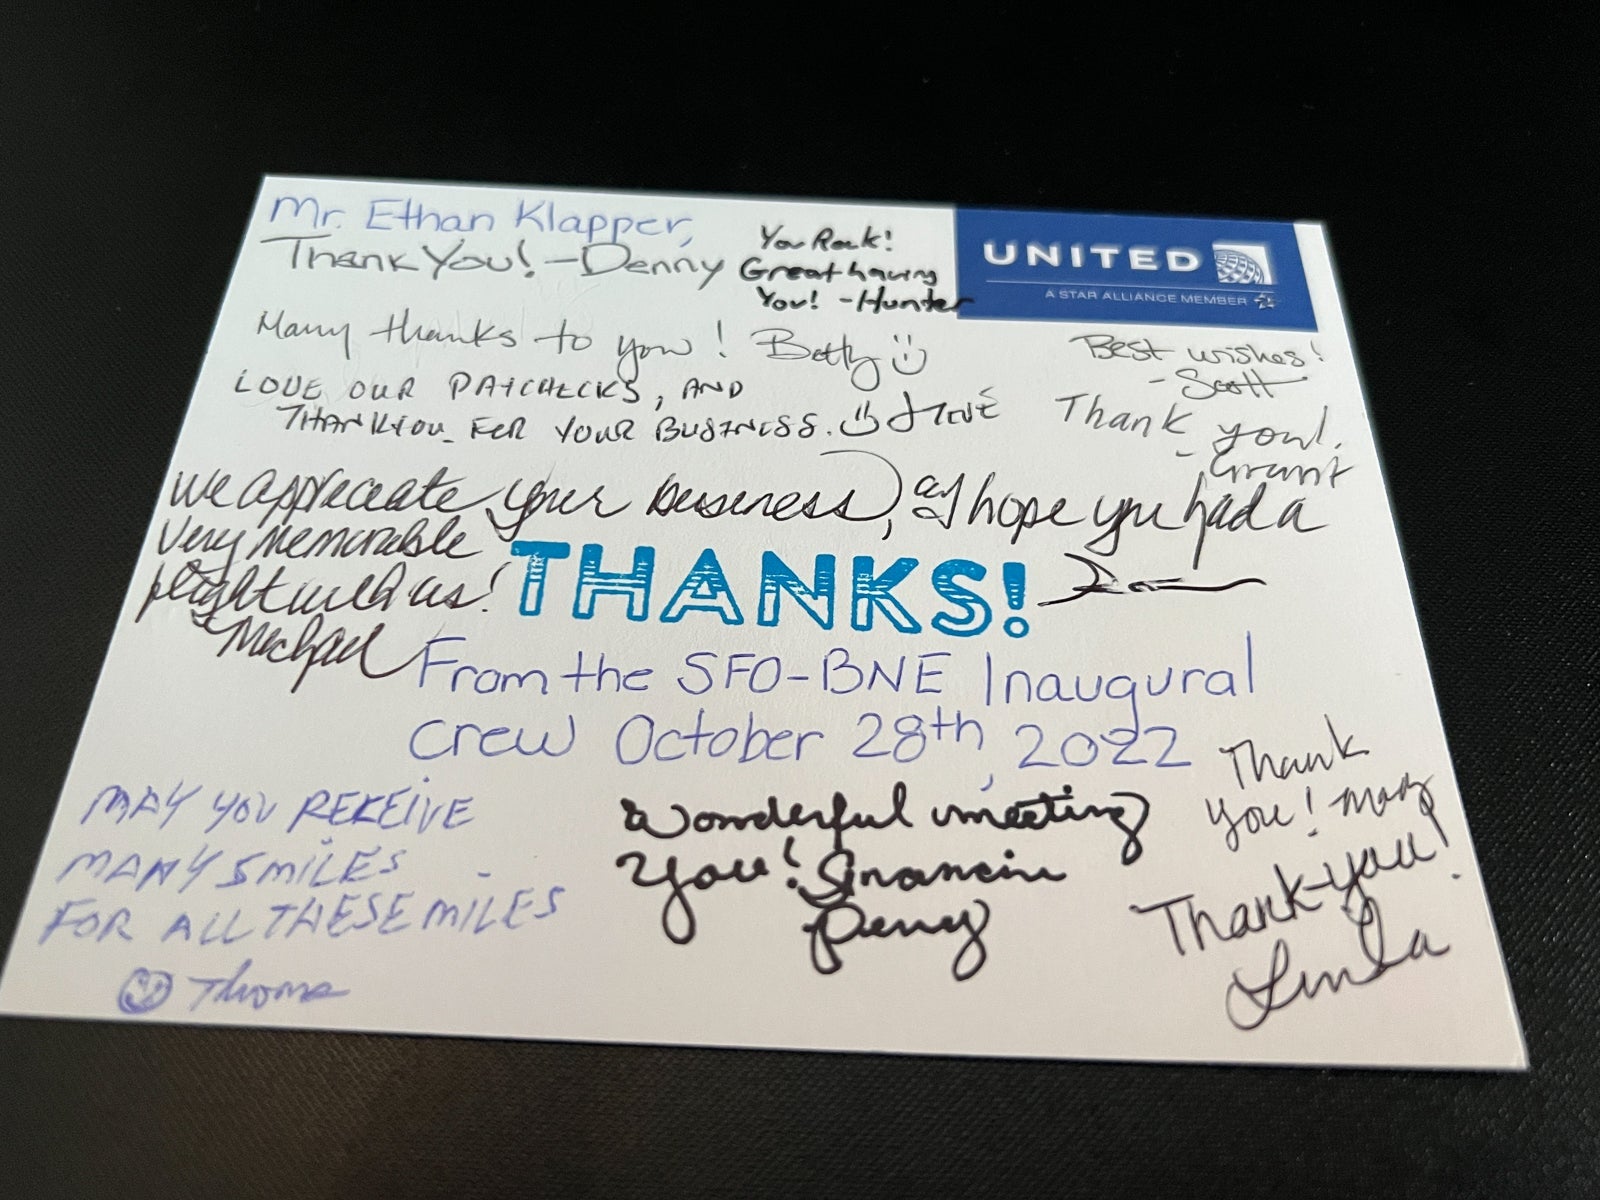 Mr. Ethan Klapper,
Thank You! -Denny
You Rock!
Great having
You! -Hunter
UNITED
A STAR ALLIANCE MEMBER
Many thanks to you! Betty
Best wishes!
- Scott
LOVE OUR PAYCHECKS, AND
THANKYOU FOR YOUR BUSINESS.
Thank you!
- Grant
We appreciate your business, I hope you had a
very memorable
flight with us!
Michael
THANKS!
From the SFO-BNE Inaugural
crew October 28th, 2022
MAY YOU RECEIVE
MANY SMILES
FOR ALL THESE MILES
Wonderful meeting
you!
Perry
Thank
you! Mary
Thank-you!
Linda